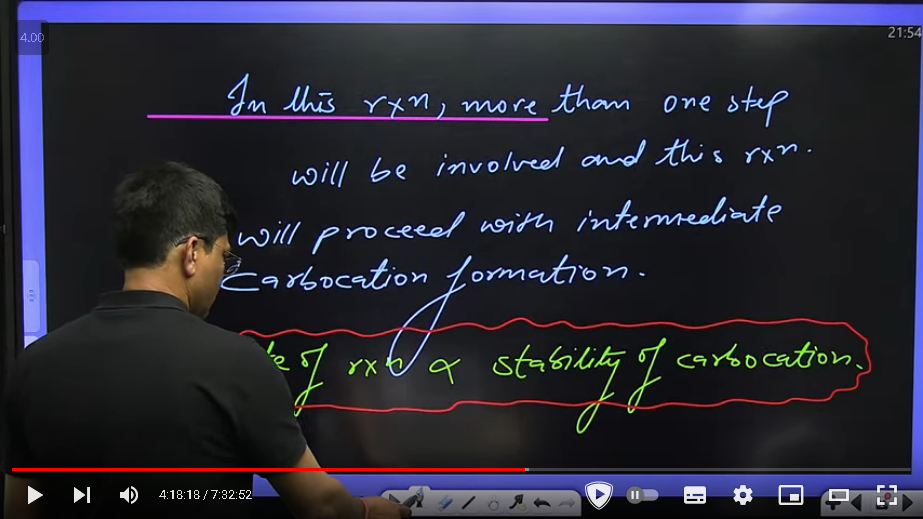 4.00
21:54
In this rxn, more than one step
will be involved and this rxn.
will proceed with intermediate
Carbocation formation.
of rxn ∝ stability of carbocation.
4:18:18 / 7:32:52